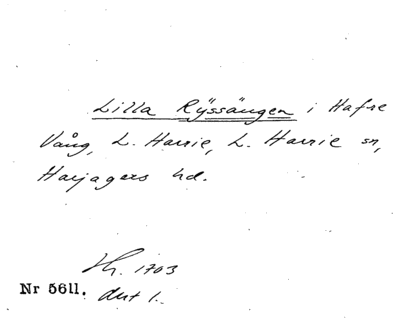 Lilla Rÿssängen i Hafre
Vång, L. Harrie, L. Harrie sn,
Harjagers hd.
Lh. 1703
Nr 5611. akt 1.